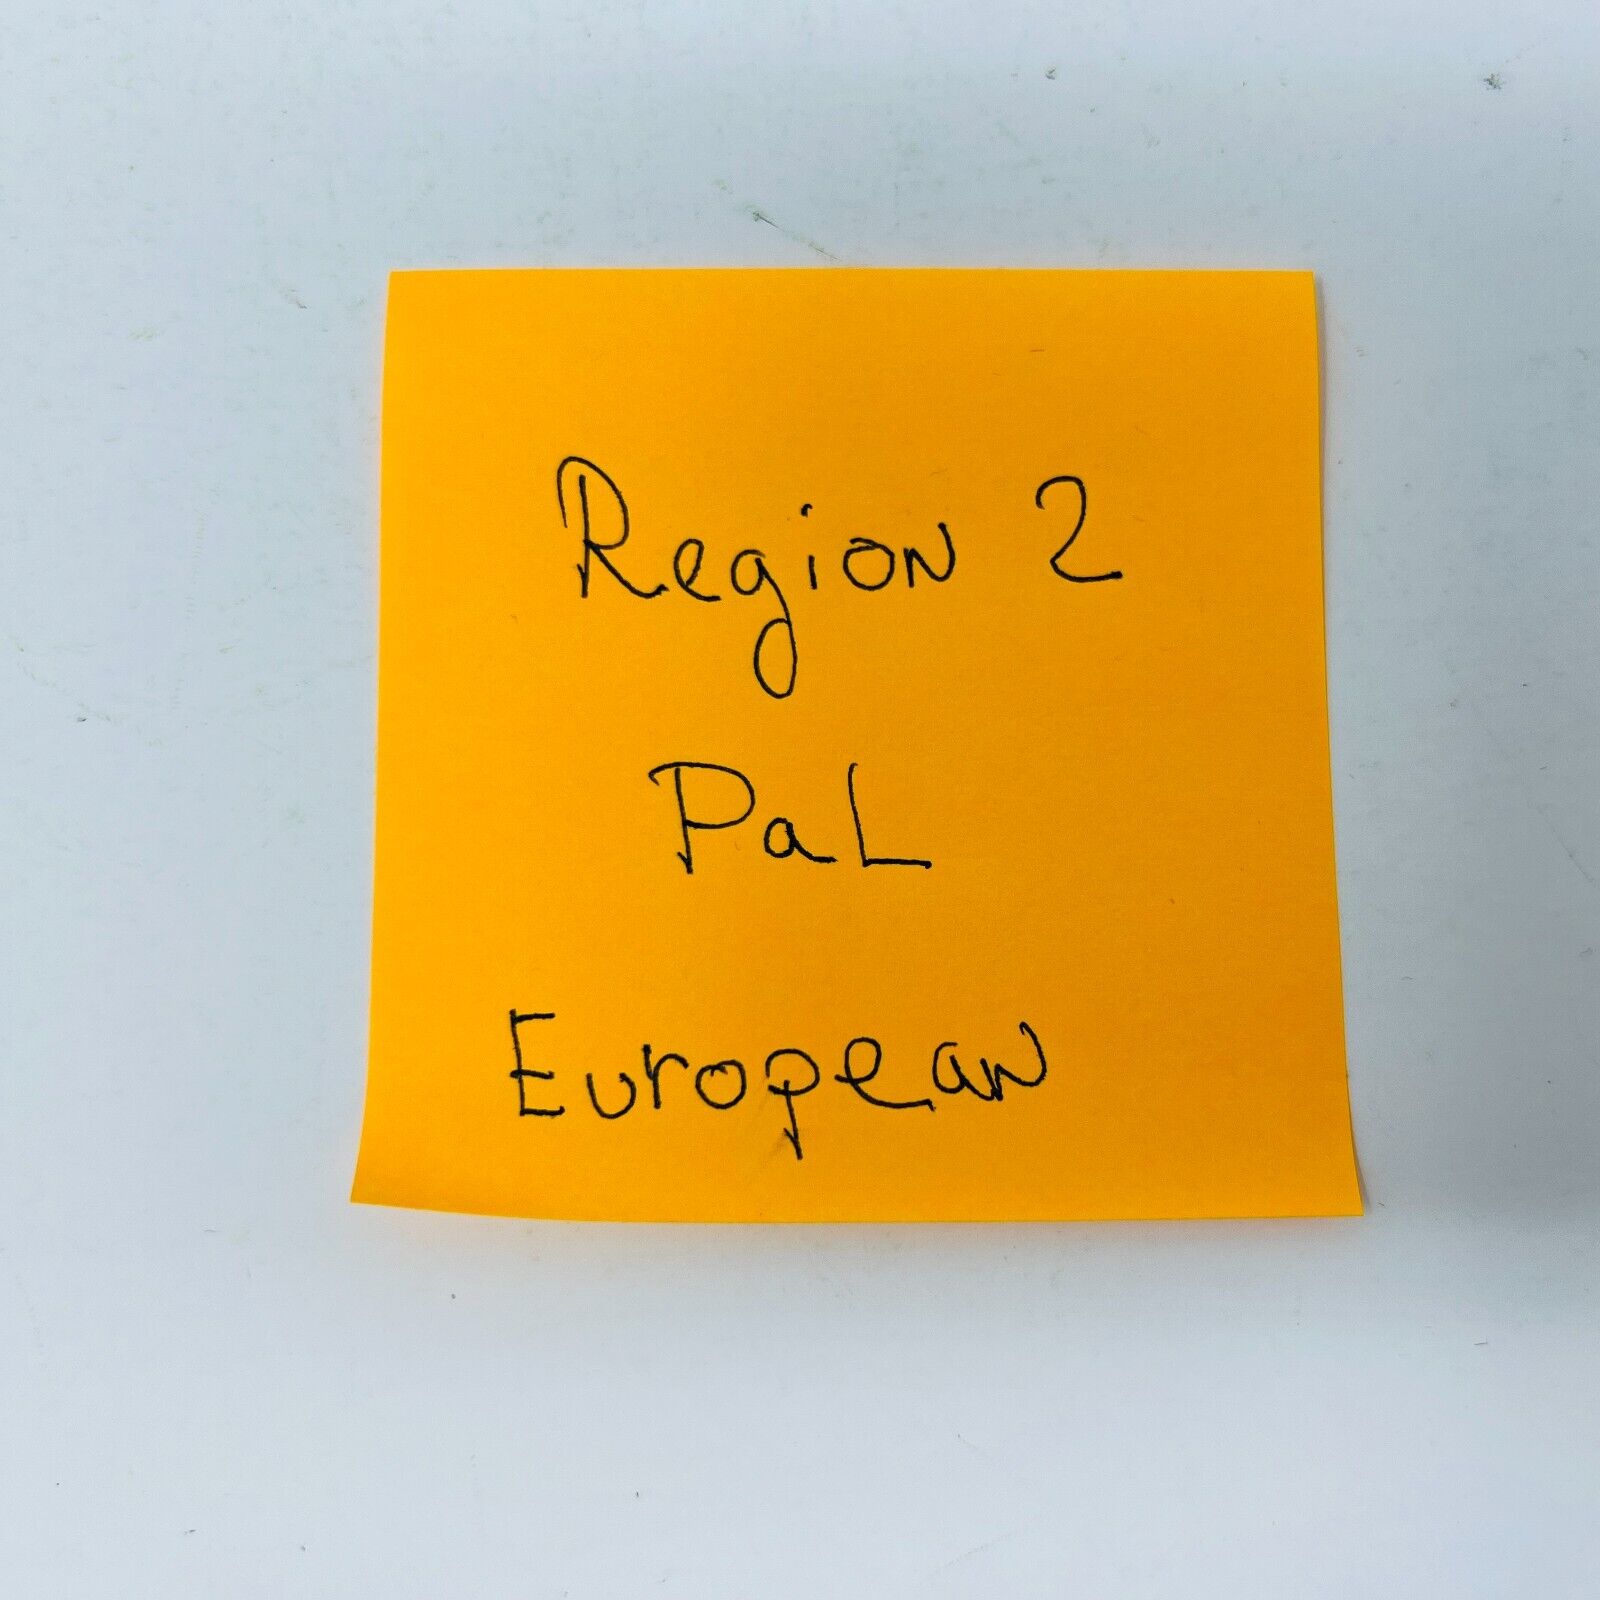 Region 2
PaL
European